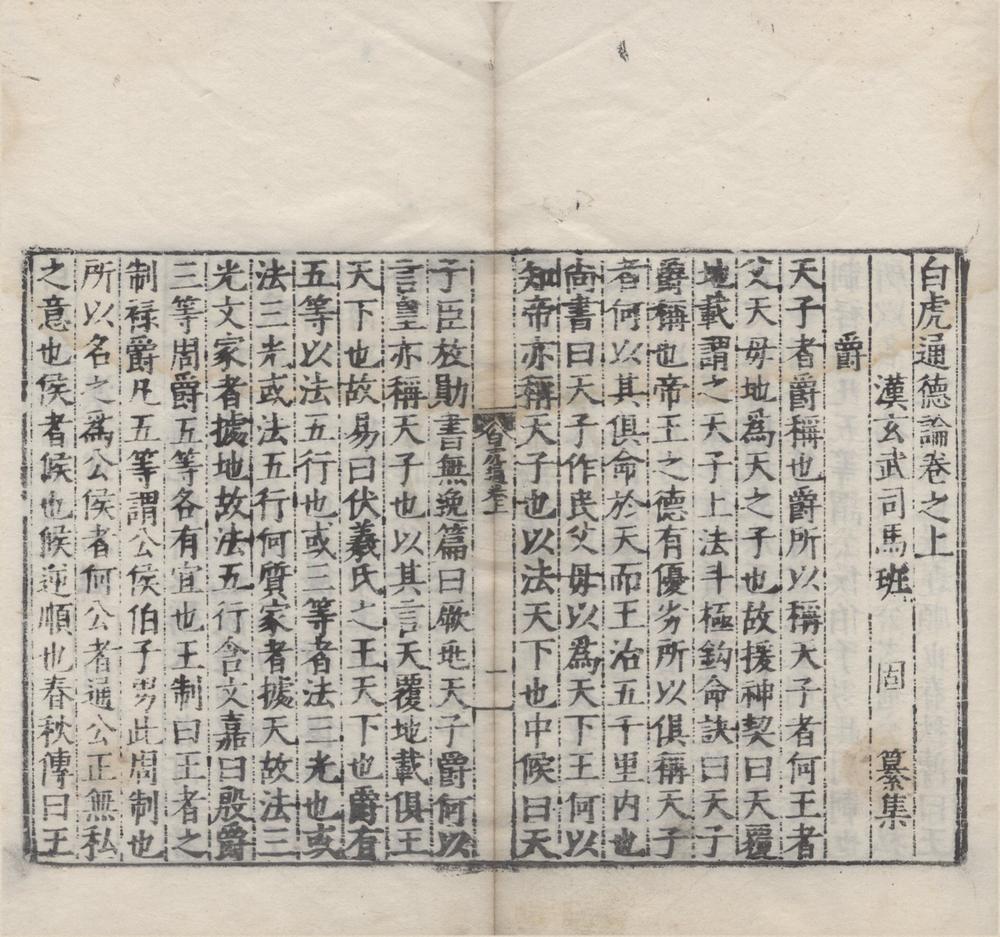 白虎通德論卷之上
漢玄武司馬班 固 纂集
爵
天子者爵稱也爵所以稱天子者何王者
父天母地爲天之子也故援神契曰天覆
地載謂之天子上法斗極鈎命訣曰天子
爵稱也帝王之德有優劣所以俱稱天子
者何以其俱命於天而王治五千里内也
尚書曰天子作民父母以爲天下王何以
知帝亦稱天子也以法天下也中候曰天
卷上
一
子臣放勛書無逸篇曰厥兆天子爵何以
言皇亦稱天子也以其言天覆地載俱王
天下也故易曰伏羲氏之王天下也爵有
五等以法五行也或三等者法三光也或
法三光或法五行何質家者據天故法三
光文家者據地故法五行含文嘉曰殷爵
三等周爵五等各有宜也王制曰王者之
制祿爵凡五等謂公侯伯子男此周制也
所以名之爲公侯者何公者通公正無私
之意也侯者候也候逆順也春秋傳曰王